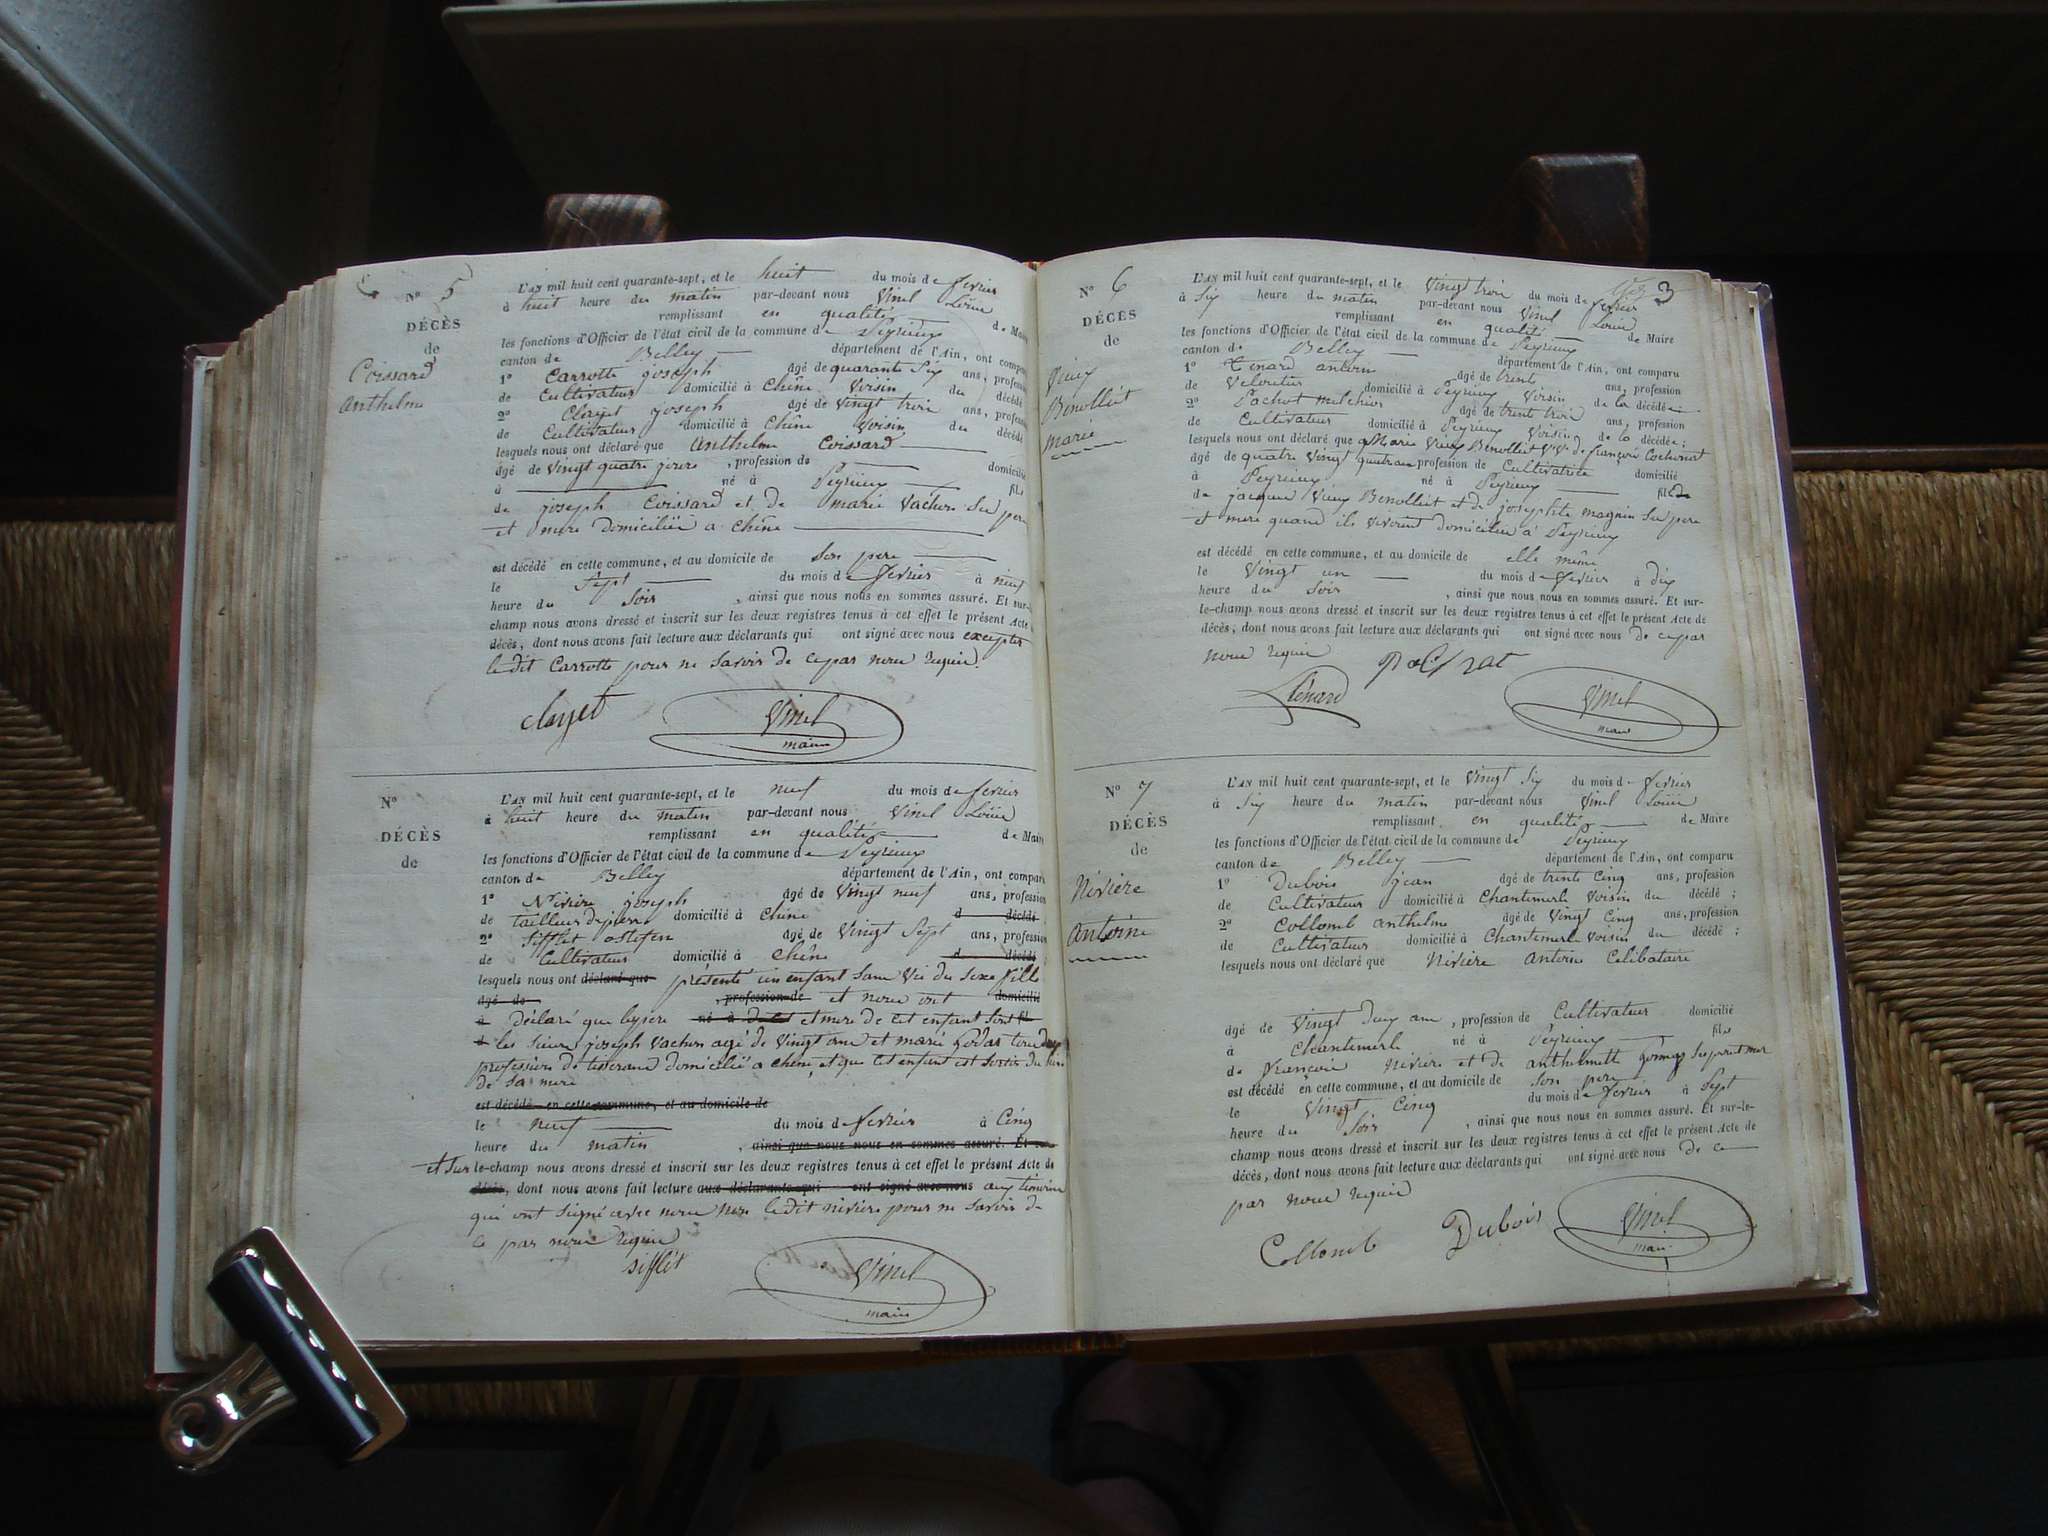 N° 5
DÉCÈS
de
Coissard
Anthelme
L'AN mil huit cent quarante-sept, et le huit du mois de fevrier
à huit heure du matin par-devant nous Vinel Louis
remplissant en qualité de Maire
les fonctions d'Officier de l'état civil de la commune de Peyrieux
canton de Belley département de l'Ain, ont comparu
1° Carrotte joseph agé de quarante Six ans, profession
de Cultivateur domicilié à Chêne Voisin du décédé
2° Clayet joseph agé de Vingt trois ans, profession
de Cultivateur domicilié à Chêne Voisin du décédé
lesquels nous ont déclaré que Anthelme Coissard
âgé de Vingt quatre jours, profession de domicilié
à né à Peyrieux fils
de joseph Coissard et de marie Vachon Ses pere
et mere domiciliés a Chêne
est décédé en cette commune, et au domicile de Son pere
le Sept du mois de fevrier à neuf
heure du Soir, ainsi que nous nous en sommes assuré. Et sur-
champ nous avons dressé et inscrit sur les deux registres tenus à cet effet le présent Acte
décès, dont nous avons fait lecture aux déclarants qui ont signé avec nous excepter
le dit Carrotte pour ne Savoir de ce par nous requis.
clayet Vinel
maire
N°
DÉCÈS
de
L'AN mil huit cent quarante-sept, et le neuf du mois de fevrier
à huit heure du matin par-devant nous Vinel Louis
remplissant en qualité de Maire
les fonctions d'Officier de l'état civil de la commune de Peyrieux
canton de Belley département de l'Ain, ont comparu
1° Nivière joseph agé de Vingt neuf ans, profession
de tailleur de pierre domicilié à Chêne d décédé
2° Sifflet agé de Vingt Sept ans, profession
de Cultivateur domicilié à Chêne d décédé
lesquels nous ont déclaré que présenté un enfant Sans Vie du Sexe fille
agé de , profession de et nous ont domicilié
à déclaré que le pere né à et mere de cet enfant Sont fil
les Sieurs joseph Vachon agé de Vingt ans et marie
profession de tisserand domiciliés a chêne, et que cet enfant est Sortis du Sein
de Sa mere
est décédé en cette commune, et au domicile de
le neuf du mois de fevrier à Cinq
heure du matin, ainsi que nous nous en sommes assuré. Et sur
et Sur le-champ nous avons dressé et inscrit sur les deux registres tenus à cet effet le présent Acte de
décès, dont nous avons fait lecture aux déclarants qui ont signé avec nous aux témoins
qui ont Signé avec nous non le dit nivière pour ne Savoir de
ce par nous requis
sifflét Vinel
maire
3
N° 6
DÉCÈS
de
Vieux
Benolliet
marie
L'AN mil huit cent quarante-sept, et le Vingt trois du mois de fevrier
à Six heure du matin par-devant nous Vinel Louis
remplissant en qualité de Maire
les fonctions d'Officier de l'état civil de la commune de Peyrieux
canton de Belley département de l'Ain, ont comparu
1° Tenard antoine agé de trente ans, profession
de domicilié à Peyrieux Voisin de la décédée
2° Pachot melchior agé de trente trois ans, profession
de Cultivateur domicilié à Peyrieux Voisin de la décédée;
lesquels nous ont déclaré que Marie Vieux Benolliet Vve de françois Cochonat
âgé de quatre Vingt quatre ans profession de Cultivatrice domicilié
à Peyrieux né à Peyrieux fille
de jacques Vieux Benolliet et de josephte magnin Ses pere
et mere quand ils Vivoient domiciliés à Peyrieux
est décédé en cette commune, et au domicile de elle même
le Vingt un du mois de fevrier à dix
heure du Soir, ainsi que nous nous en sommes assuré. Et sur-
le-champ nous avons dressé et inscrit sur les deux registres tenus à cet effet le présent Acte de
décès, dont nous avons fait lecture aux déclarants qui ont signé avec nous de ce par
nous requis
Ténard Vinel
maire
N° 7
DÉCÈS
de
Nivière
Antoine
L'AN mil huit cent quarante-sept, et le Vingt Six du mois de fevrier
à Six heure du matin par-devant nous Vinel Louis
remplissant en qualité de Maire
les fonctions d'Officier de l'état civil de la commune de Peyrieux
canton de Belley département de l'Ain, ont comparu
1° Dubois jean agé de trente Cinq ans, profession
de Cultivateur domicilié à Chantemerle Voisin du décédé;
2° Collomb Anthelme agé de Vingt Cinq ans, profession
de Cultivateur domicilié à Chantemerle Voisin du décédé;
lesquels nous ont déclaré que Nivière Antoine Célibataire
âgé de Vingt deux ans, profession de Cultivateur domicilié
à Chantemerle né à Peyrieux fils
de françois Nivière et de anthelmette Ses pere et mere
est décédé en cette commune, et au domicile de Son pere
le Vingt Cinq du mois de fevrier à Sept
heure du Soir, ainsi que nous nous en sommes assuré. Et sur-le-
champ nous avons dressé et inscrit sur les deux registres tenus à cet effet le présent Acte de
décès, dont nous avons fait lecture aux déclarants qui ont signé avec nous de ce
par nous requis
Collomb Dubois Vinel
maire